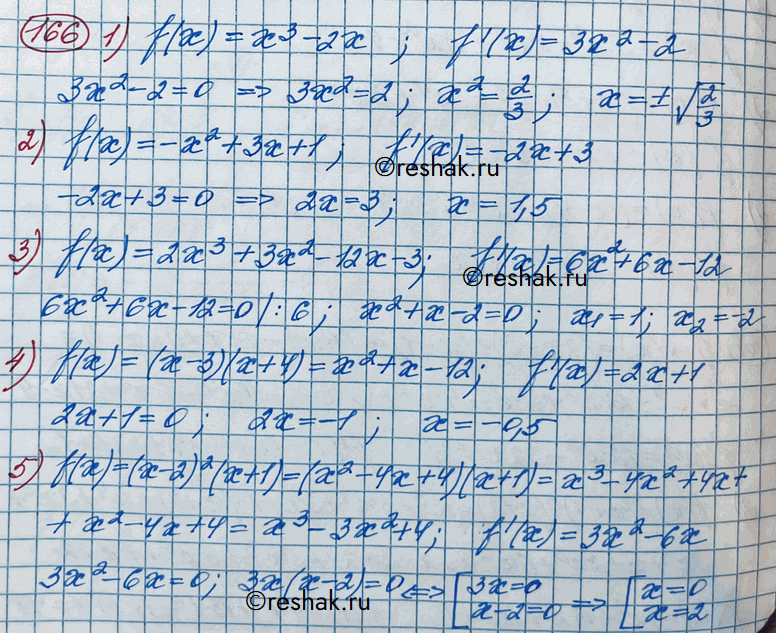 166 1) f(x) = x³ - 2x ; f'(x) = 3x² - 2
3x² - 2 = 0 => 3x² = 2 ; x² = 2/3 ; x = ± √(2/3)
2) f(x) = -x² + 3x + 1 ; f'(x) = -2x + 3
©reshak.ru
-2x + 3 = 0 => 2x = 3 ; x = 1,5
3) f(x) = 2x³ + 3x² - 12x - 3 ; f'(x) = 6x² + 6x - 12
©reshak.ru
6x² + 6x - 12 = 0 | : 6 ; x² + x - 2 = 0 ; x₁ = 1 ; x₂ = -2
4) f(x) = (x - 3)(x + 4) = x² + x - 12 ; f'(x) = 2x + 1
2x + 1 = 0 ; 2x = -1 ; x = -0,5
5) f(x) = (x - 2)² (x + 1) = (x² - 4x + 4)(x + 1) = x³ - 4x² + 4x +
+ x² - 4x + 4 = x³ - 3x² + 4 ; f'(x) = 3x² - 6x
3x² - 6x = 0 ; 3x(x - 2) = 0 <=> [ 3x = 0 => [ x = 0
x - 2 = 0 x = 2
©reshak.ru